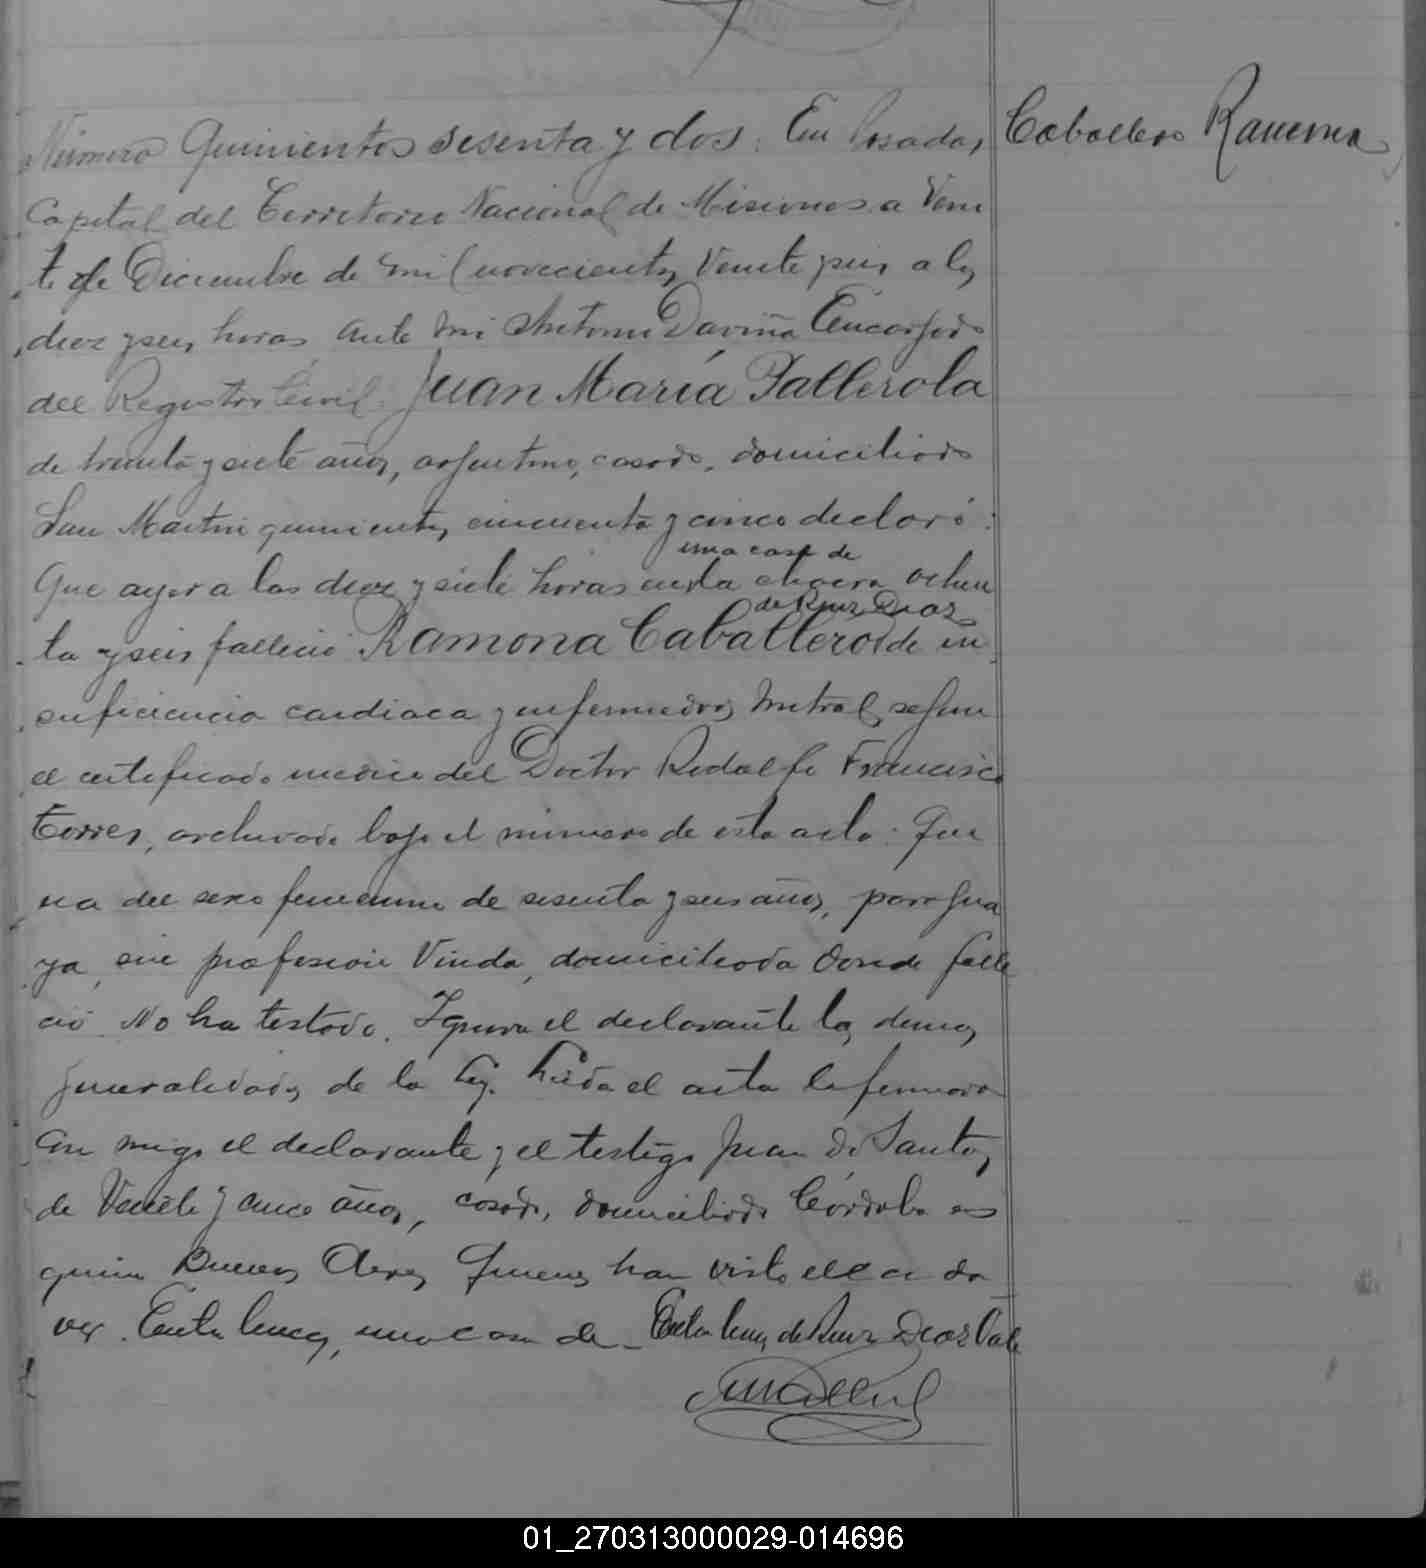 Numero Quinientos sesenta y dos: En Posadas,
Caballero Ramona
Capital del Territorio Nacional de Misiones a Vein
te de Diciembre de mil novecientos Veinte y seis a las
diez y seis horas ante mi Antonio Daviña Encargado
del Registro Civil: Juan María Fallerola
de treinta y siete años, argentino, casado, domiciliado
San Martin quinientos cincuenta y cinco declaró:
una casa de
Que ayer a las diez y siete horas en la chacra ochen
de Ruiz Diaz
ta y seis falleció Ramona Caballero de in
suficiencia cardiaca y enfermedad mitral, segun
el certificado medico del Doctor Rodolfo Francisco
Torres, archivado bajo el número de esta acta: Que
era del sexo femenino de sesenta y seis años, paragua
ya, sin profesion Viuda, domiciliada donde falle
ció. No ha testado. Ignora el declarante las demas
generalidades de la ley. Leida el acta la firmaron
con migo el declarante y el testigo Juan D. Santos,
de Veinte y cinco años, casado, domiciliado Córdoba es
quina Buenos Aires Quienes han visto el cada
ver. Entre lineas, una casa de. Entre lineas de Ruiz Diaz Vale
01_270313000029-014696